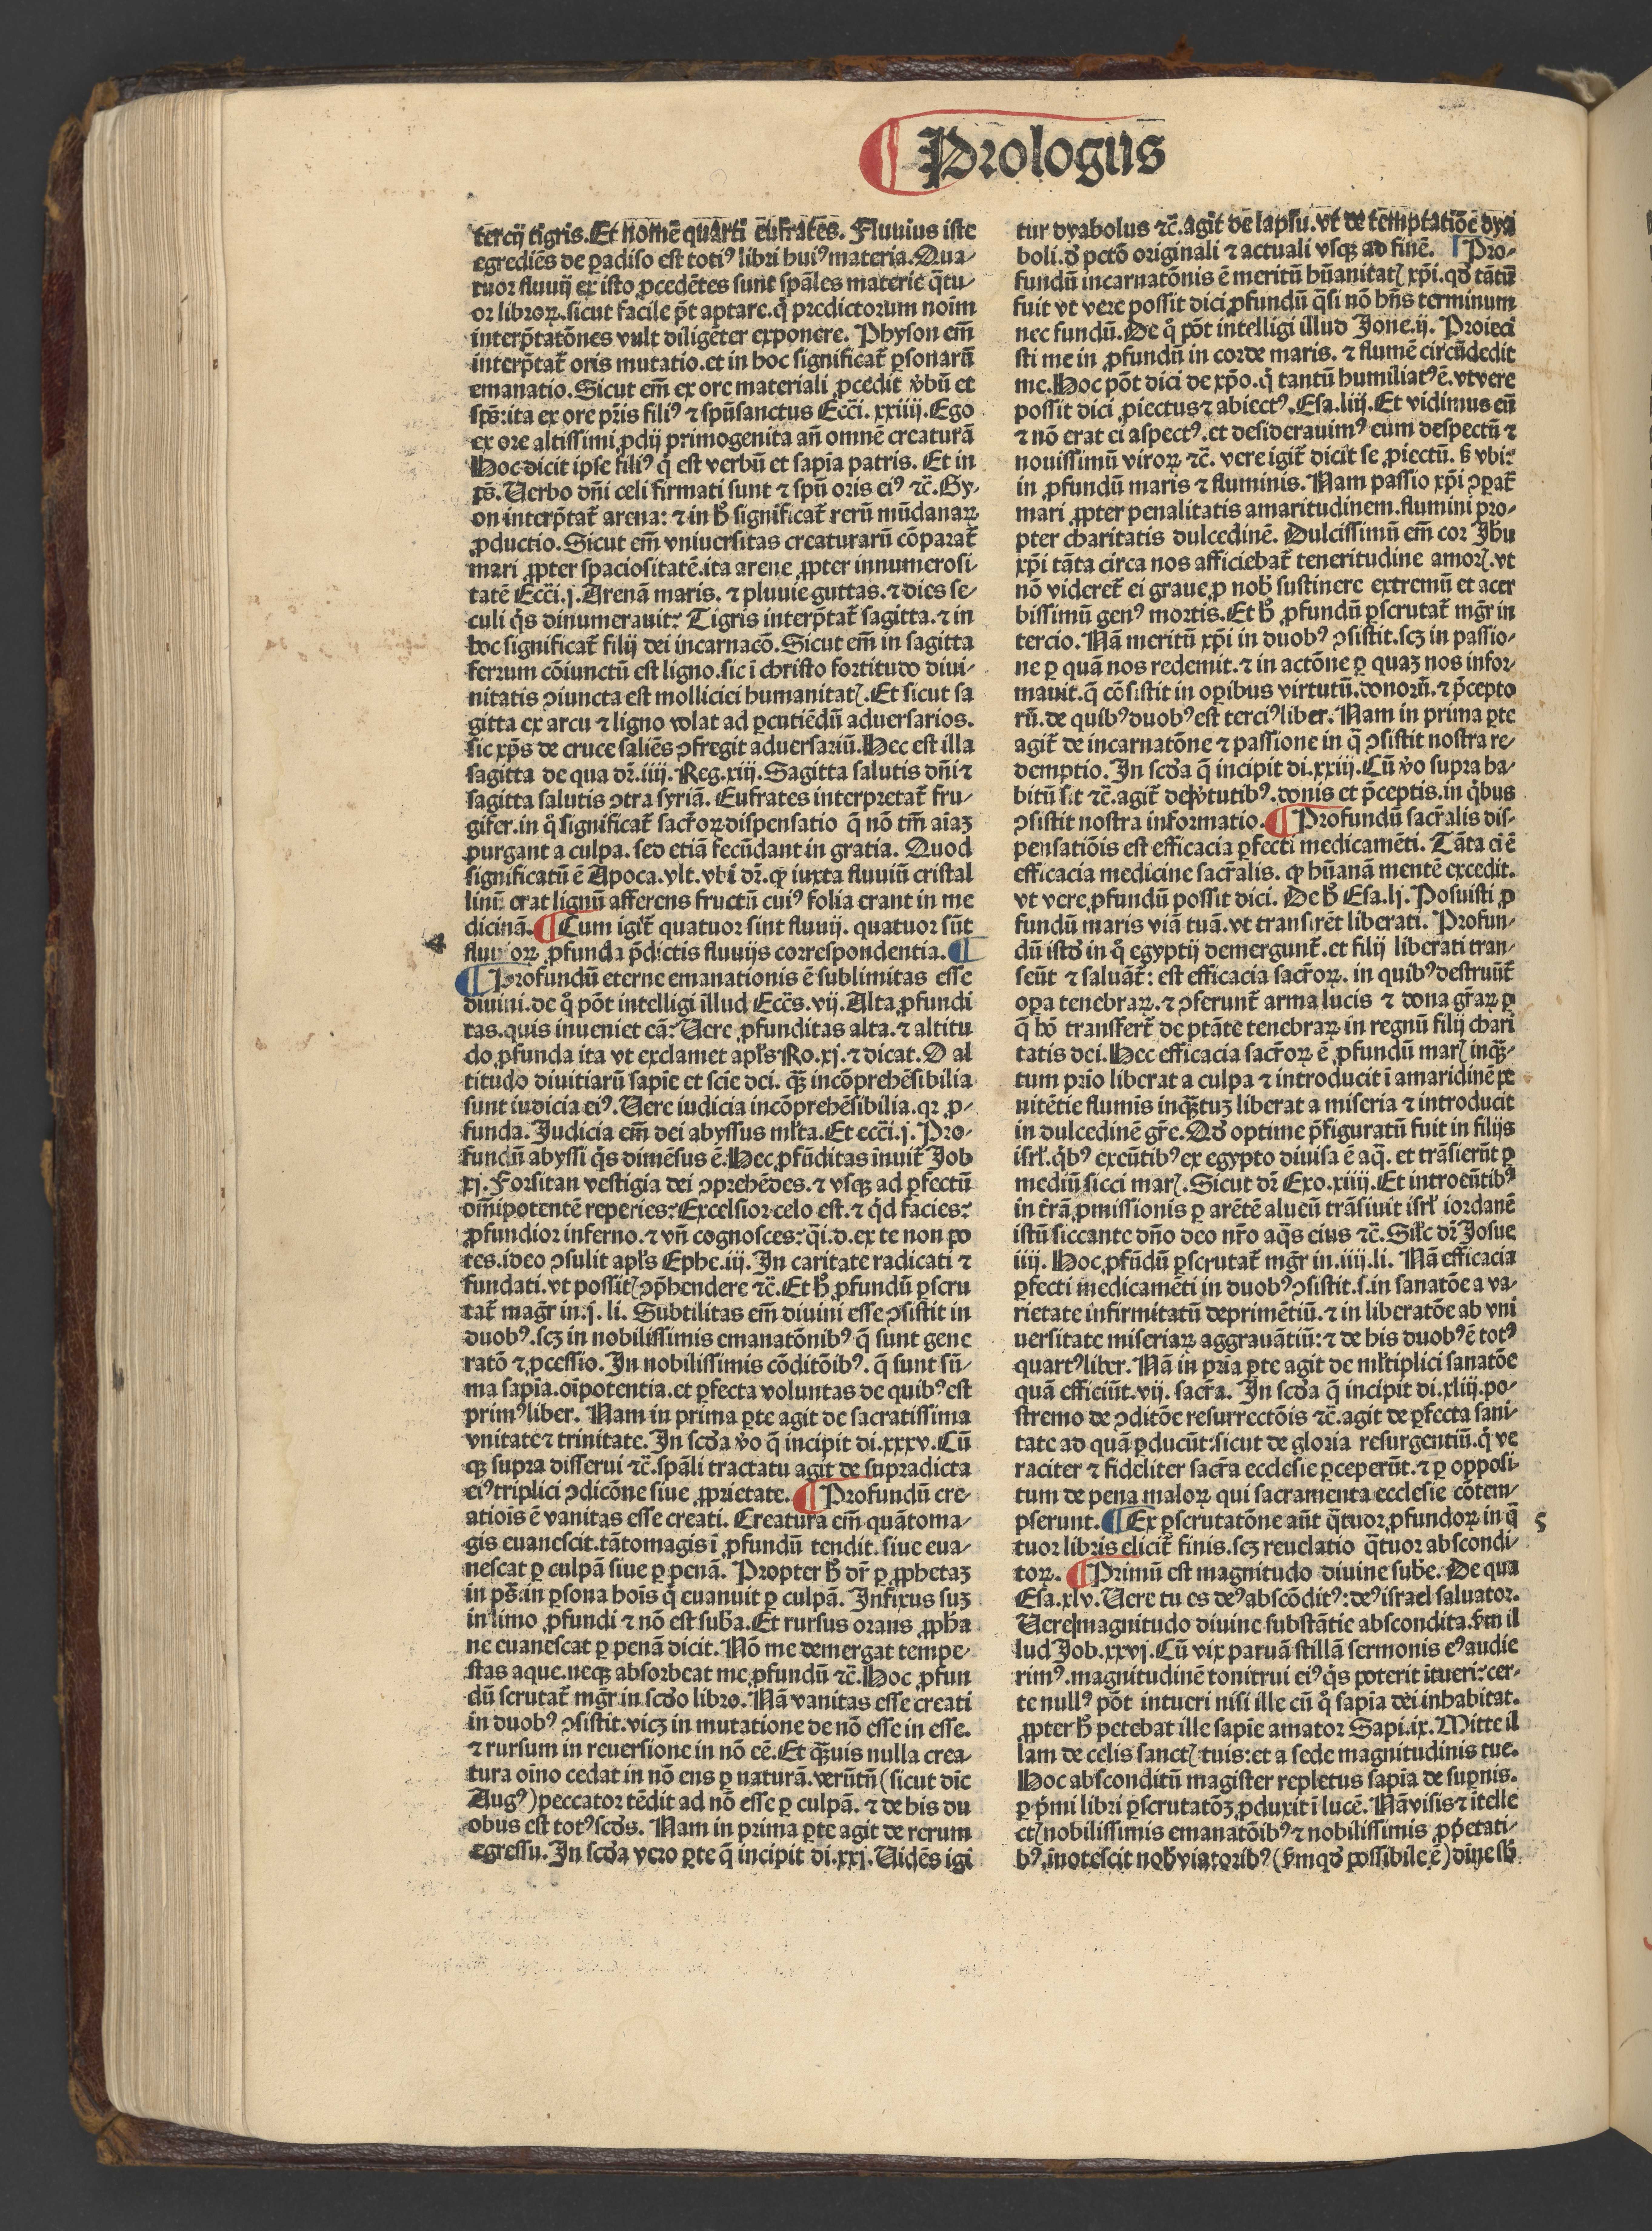 ¶ Prologus
tercij tigris. Et nomē quarti eufrates. Fluuius iste
egrediēs de ꝑadiso est totiꝰ libri huiꝰ materia. Qua-
tuor fluuij ex isto ꝓcedētes sunt sp̄ales materie q̄tu-
or libroꝝ. sicut facile pt̄ aptare. q̇ predictorum noīm
interp̄tatōnes vult diligēter exponere. Physon em̄
interp̄tat̄ oris mutatio. et in hoc significat̄ ꝑsonarū
emanatio. Sicut em̄ ex ore materiali ꝓcedit v̓bū et
sp̄s: ita ex ore pr̄is filiꝰ ⁊ spūsanctus Ecc̄i. xxiiij. Ego
ex ore altissimi ꝓdij primogenita an̄ omnē creaturā
Hoc dicit ipse filiꝰ q̇ est verbū et sapīa patris. Et in
ps̄. Uerbo dn̄i celi firmati sunt ⁊ spū oris eiꝰ ⁊c̄. Gy-
on interp̄tat̄ arena: ⁊ in h̓ significat̄ rerū mūdanaꝝ
ꝓductio. Sicut em̄ vniuersitas creaturarū cōparat̄
mari ꝓpter spaciositatē. ita arene ꝓpter innumerosi-
tatē Ecc̄i. j. Arenā maris. ⁊ pluuie guttas. ⁊ dies se-
culi q̇s dinumerauit? Tigris interp̄tat̄ sagitta. ⁊ in
hoc significat̄ filij dei incarnacō. Sicut em̄ in sagitta
ferrum cōiunctū est ligno. sic ī christo fortitudo diui-
nitatis ꝯiuncta est molliciei humanitatꝭ. Et sicut sa
gitta ex arcu ⁊ ligno volat ad ꝑcutiēdū aduersarios.
sic xp̄s de cruce saliēs ꝯfregit aduersariū. Hec est illa
sagitta de qua dr̄. iiij. Reg. xiij. Sagitta salutis dn̄i ⁊
sagitta salutis ꝯtra syriā. Eufrates interpretat̄ fru-
gifer. in q̊ significat̄ sacr̄oꝝ dispensatio q̄ nō tm̄ aīaꝫ
purgant a culpa. sed etiā fecūdant in gratia. Quod
significatū ē Apoca. vlt. vbi dr̄. ꝙ iuxta fluuiū cristal
linū: erat lignū afferens fructū cuiꝰ folia erant in me
dicinā. ¶ Cum igit̄ quatuor sint fluuij. quatuor sūt
4
fluuioꝝ ꝓfunda p̄dictis fluuijs correspondentia. ¶
¶ Profundū eterne emanationis ē sublimitas esse
diuini. de q̊ pōt intelligi illud Ecc̄s. vij. Alta ꝓfundi
tas. quis inueniet eā? Uere ꝓfunditas alta. ⁊ altitu
do ꝓfunda ita vt exclamet apl̄s Ro. xj. ⁊ dicat. O al
titudo diuitiarū sapīe et scīe dei. qꝫ̄ incōprehēsibilia
sunt iudicia eiꝰ. Uere iudicia incōprehēsibilia. qꝛ ꝓ-
funda. Judicia em̄ dei abyssus ml̄ta. Et ecc̄i. j. Pro-
fundū abyssi q̇s dimēsus ē. Hec ꝓfūditas īnuit̄ Job
xj. Forsitan vestigia dei ꝯprehēdes. ⁊ vsqꝫ ad ꝑfectū
om̄ipotentē reperies? Excelsior celo est. ⁊ q̇d facies?
ꝓfundior inferno. ⁊ vn̄ cognosces? q̇i. d. ex te non po
tes. ideo ꝯsulit apl̄s Ephe. iij. In caritate radicati ⁊
fundati. vt possitꝭ ꝯp̄hendere ⁊c̄. Et h̓ ꝓfundū ꝑscru
tat̄ magr̄ in. j. li. Subtilitas em̄ diuini esse ꝯsistit in
duobꝰ. scꝫ in nobilissimis emanatōnibꝰ q̄ sunt gene
ratō ⁊ ꝓcessio. In nobilissimis cōditōibꝰ. q̄ sunt sū-
ma sapīa. oīpotentia. et ꝑfecta voluntas de quibꝰ est
primꝰ liber. Nam in prima ꝑte agit de sacratissima
vnitate ⁊ trinitate. In scd̓a v̓o q̄ incipit di. xxxv. Cū
qꝫ supra disserui ⁊c̄. sp̄ali tractatu agit de supradicta
eiꝰ triplici ꝯdicōne siue ꝓprietate. ¶ Profundū cre-
atiōis ē vanitas esse creati. Creatura em̄ quātoma-
gis euanescit. tātomagis ī ꝓfundū tendit. siue eua-
nescat ꝑ culpā siue ꝑ penā. Propter h̓ dr̄ ꝑ ꝓphetaꝫ
in ps̄. in ꝑsona hoīs q̇ euanuit ꝑ culpā. Infixus suꝫ
in limo ꝓfundi ⁊ nō est sub̄a. Et rursus orans ꝓph̄a
ne euanescat ꝑ penā dicit. Nō me demergat tempe-
stas aque. neqꝫ absorbeat me ꝓfundū ⁊c̄. Hoc ꝓfun
dū scrutat̄ mgr̄ in scd̓o libro. Nā vanitas esse creati
in duobꝰ ꝯsistit. vicꝫ in mutatione de nō esse in esse.
⁊ rursum in reuersione in nō eē. Et qꝫ̄uis nulla crea-
tura oīno cedat in nō ens ꝑ naturā. verūtn̄ (sicut dic̄
Augꝰ) peccator tēdit ad nō esse ꝑ culpā. ⁊ de his du
obus est totꝰ scd̓s. Nam in prima ꝑte agit de rerum
egressu. In scd̓a vero ꝑte q̄ incipit di. xxj. Uidēs igi
tur dyabolus ⁊c̄. agit de lapsu. vt de temptatiōe dya
boli. d̓ pctō originali ⁊ actuali vsqꝫ ad finē. Pro-
fundū incarnatōnis ē meritū hūanitatꝭ xp̄i. qd̓ tātū
fuit vt vere possit dici ꝓfundū q̄si nō hn̄s terminum
nec fundū. De q̊ pōt intelligi illud Jone. ij. Proieci
sti me in ꝓfundū in corde maris. ⁊ flumē circūdedit
me. Hoc pōt dici de xp̄o. q̇ tantū humiliatꝰ ē. vt vere
possit dici ꝓiectus ⁊ abiectꝰ. Esa. liij. Et vidimus eū
⁊ nō erat ei aspectꝰ. et desiderauimꝰ eum despectū ⁊
nouissimū viroꝝ ⁊c̄. vere igit̄ dicit se ꝓiectū. s̓ vbi?
in ꝓfundū maris ⁊ fluminis. Nam passio xp̄i ꝯꝑat̄
mari ꝓpter penalitatis amaritudinem. flumini pro-
pter charitatis dulcedinē. Dulcissimū em̄ cor Jh̄u
xp̄i tāta circa nos afficiebat̄ teneritudine amorꝭ. vt
nō videret̄ ei graue ꝑ nob̓ sustinere extremū et acer
bissimū genꝰ mortis. Et h̓ ꝓfundū ꝑscrutat̄ mgr̄ in
tercio. Nā meritū xp̄i in duobꝰ ꝯsistit. scꝫ in passio-
ne ꝑ quā nos redemit. ⁊ in actōne ꝑ quaꝫ nos infor-
mauit. q̄ cōsistit in oꝑibus virtutū. donorū. ⁊ p̄cepto
rū. de quibꝰ duobꝰ est terciꝰ liber. Nam in prima ꝑte
agit̄ de incarnatōne ⁊ passione in q̄ ꝯsistit nostra re-
demptio. In scd̓a q̄ incipit di. xxiij. Cū v̓o supra ha-
bitū sit ⁊c̄. agit̄ de v̓tutibꝰ. donis et p̄ceptis. in q̇bus
ꝯsistit nostra informatio. ¶ Profundū sacr̄alis dis-
pensatiōis est efficacia ꝑfecti medicamēti. Tāta ei ē
efficacia medicine sacr̄alis. ꝙ hūanā mentē excedit.
vt vere ꝓfundū possit dici. De h̓ Esa. lj. Posuisti ꝓ
fundū maris viā tuā. vt transirēt liberati. Profun-
dū istd̓ in q̊ egyptij demergunt̄. et filij liberati tran-
seūt ⁊ saluāt̄: est efficacia sacr̄oꝝ. in quibꝰ destruūt̄
oꝑa tenebraꝝ. ⁊ ꝯferunt̄ arma lucis ⁊ dona gr̄aꝝ ꝑ
q̄ hō transfert̄ de ptāte tenebraꝝ in regnū filij chari
tatis dei. Hec efficacia sacr̄oꝝ ē ꝓfundū marꝭ inqꝫ̄-
tum prīo liberat a culpa ⁊ introducit ī amaridinē pe
nitētie flumīs inqꝫ̄tuꝫ liberat a miseria ⁊ introducit
in dulcedinē gr̄e. Qd̓ optime p̄figuratū fuit in filijs
isrl̓. q̇bꝰ exeūtibꝰ ex egypto diuisa ē aq̄. et trāsierūt ꝑ
mediū sicci marꝭ. Sicut dr̄ Exo. xiiij. Et introeūtibꝰ
in t̄rā ꝓmissionis ꝑ arētē alueū trāsiuit isrl̓ iordanē
istū siccante dn̄o deo nr̄o aq̄s eius ⁊c̄. Sil̓r dr̄ Josue
iiij. Hoc ꝓfūdū ꝑscrutat̄ mgr̄ in. iiij. li. Nā efficacia
ꝑfecti medicamēti in duobꝰ ꝯsistit. s. in sanatōe a va-
rietate infirmitatū deprimētiū. ⁊ in liberatōe ab vni
uersitate miseriaꝝ aggrauātiū: ⁊ de his duobꝰ ē totꝰ
quartꝰ liber. Nā in pria ꝑte agit de ml̓tiplici sanatōe
quā efficiūt. vij. sacr̄a. In scd̓a q̄ incipit di. xliij. po-
stremo de ꝯditōe resurrectōis ⁊c̄. agit de ꝑfecta sani-
tate ad quā ꝑducūt: sicut de gloria resurgentiū. q̇ ve
raciter ⁊ fideliter sacr̄a ecclesie ꝑceperūt. ⁊ ꝑ opposi-
tum de pena maloꝝ qui sacramenta ecclesie cōtem-
pserunt. ¶ Ex ꝑscrutatōne aūt q̄tuor ꝓfundoꝝ in q̄
5
tuor libris elicit̄ finis. scꝫ reuelatio q̄tuor abscondi-
toꝝ. ¶ Primū est magnitudo diuine sub̄e. De qua
Esa. xlv. Uere tu es deꝰ abscōditꝰ: deꝰ israel saluator.
Uere magnitudo diuine substātie abscondita. ẜm il
lud Job. xxvj. Cū vix paruā stillā sermonis eꝰ audie
rimꝰ. magnitudinē tonitrui eiꝰ q̇s poterit ītueri? cer-
te nullꝰ pōt intueri nisi ille cū q̊ sapīa dei inhabitat.
ꝓpter h̓ petebat ille sapīe amator Sapi. ix. Mitte il
lam de celis sanctꝭ tuis: et a sede magnitudinis tue.
Hoc absconditū magister repletus sapīa de suꝑnis.
ꝑ p̄mi libri ꝑscrutatōꝫ ꝓduxit ī lucē. Nā visis ⁊ ītelle
ctꝭ nobilissimis emanatōibꝰ ⁊ nobilissimis ꝓp̓etati-
bꝰ. īnotescit nob̓ viatoribꝰ (ẜm qd̓ possibile ē) diīne sb̓